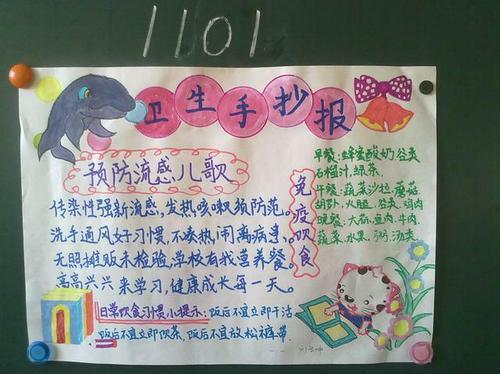 1101
卫生手抄报
预防流感儿歌
传染性强新流感,发热咳嗽须防范。
洗手通风好习惯,不凑热闹离病毒。
无照摊贩未检验,学校有我营养餐。
高高兴兴来学习,健康成长每一天。
日常饮食习惯小提示:饭后不宜立即干活
饭后不宜立即饮茶,饭后不宜放松裤带.
免疫饮食
早餐:蜂蜜酸奶谷类
石榴汁,绿茶.
午餐:蔬菜沙拉,蘑菇
胡萝卜,火腿,谷类,鸡肉
晚餐:大蒜,鱼肉,牛肉.
蔬菜,水果,粥,汤类.